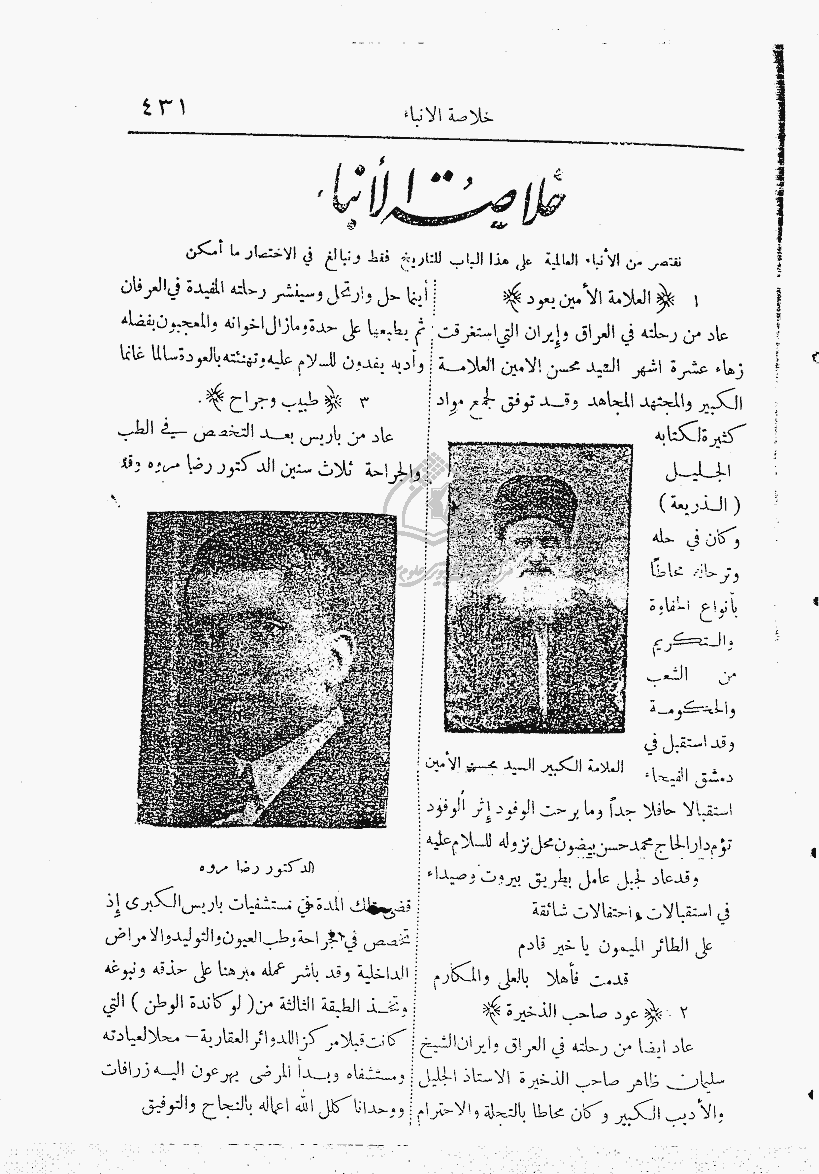 ٤٣١
خلاصة الانباء
خلاصة الأنباء
نقتصر من الأنباء العالمية على هذا الباب للتاريخ فقط ونبالغ في الاختصار ما أمكن
١ ﴿ العلامة الأمين يعود ﴾
عاد من رحلته في العراق وإيران التي استغرقت
زهاء عشرة اشهر السيد محسن الامين العلامة
الكبير والمجتهد المجاهد وقد توفق لجمع مواد
كثيرة لكتابه
الجليل
( الذريعة )
وكان في حله
وترحاله محاطاً
بأنواع الحفاوة
والتكريم
من الشعب
والحكومة
وقد استقبل في
دمشق الفيحاء
العلامة الكبير السيد محسن الأمين
استقبالا حافلا جداً وما برحت الوفود إثر الوفود
تؤم دار الحاج محمد حسن بيضون محل نزوله للسلام عليه
وقد عاد لجبل عامل بطريق بيروت وصيداء
في استقبالات واحتفالات شائقة
على الطائر الميمون يا خير قادم
قدمت فأهلا بالعلى والمكارم
٢ ﴿ عود صاحب الذخيرة ﴾
عاد ايضا من رحلته في العراق وايران الشيخ
سليمان ظاهر صاحب الذخيرة الاستاذ الجليل
والأديب الكبير وكان محاطا بالتجلة والاحترام
أينما حل وارتحل وسينشر رحلته المفيدة في العرفان
ثم يطبعها على حدة ومازال اخوانه والمعجبون بفضله
وأدبه يفدون للسلام عليه وتهنئته بالعودة سالما غانما
٣ ﴿ طبيب وجراح ﴾
عاد من باريس بعد التخصص في الطب
والجراحة ثلاث سنين الدكتور رضا مروه وقد
الدكتور رضا مروه
قضى تلك المدة في مستشفيات باريس الكبرى إذ
تخصص في الجراحة وطب العيون والتوليد والامراض
الداخلية وقد باشر عمله مبرهنا على حذقه ونبوغه
وتخذ الطبقة الثالثة من ( لوكاندة الوطن ) التي
كانت قبلا مركز اللدوائر العقارية – محلا لعيادته
ومستشفاه وبدأ المرضى يهرعون اليه زرافات
ووحدانا كلل الله اعماله بالنجاح والتوفيق